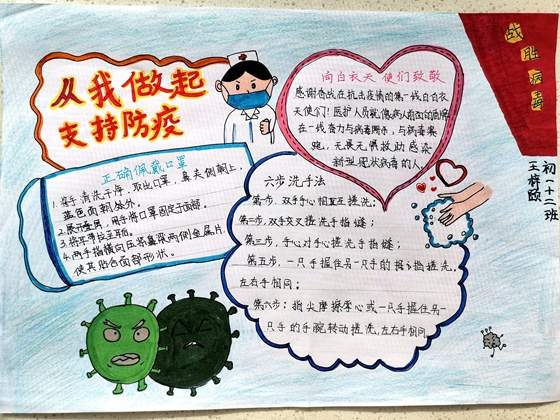 从我做起
支持防疫
战胜病毒
初一十二班
向白衣天使们致敬
感谢奋战在抗击疫情的第一线白衣天
天使们!医护人员就像病人面前的盾牌
在一线奋力与病毒周旋,与病毒赛
跑,无畏无惧救助感染
新型冠状病毒的人。
正确佩戴口罩
清洗干净,取出口罩,鼻夹侧朝上,
蓝色面朝外。
用手将口罩固定于面部。
3.将耳带拉至耳后。
4.两手指横向压将鼻梁两侧金属片,
使其贴合面部形状。
六步洗手法
第一步,双手心相互搓洗;
双手交叉搓洗手指缝;
第三步,手心对手心搓洗手指缝;
第五步,一只手握住另一只手的拇指搓洗,
左右手相同;
第六步:指尖摩擦掌心或一只手握住另
一只手的手腕转动搓洗,左右手相同